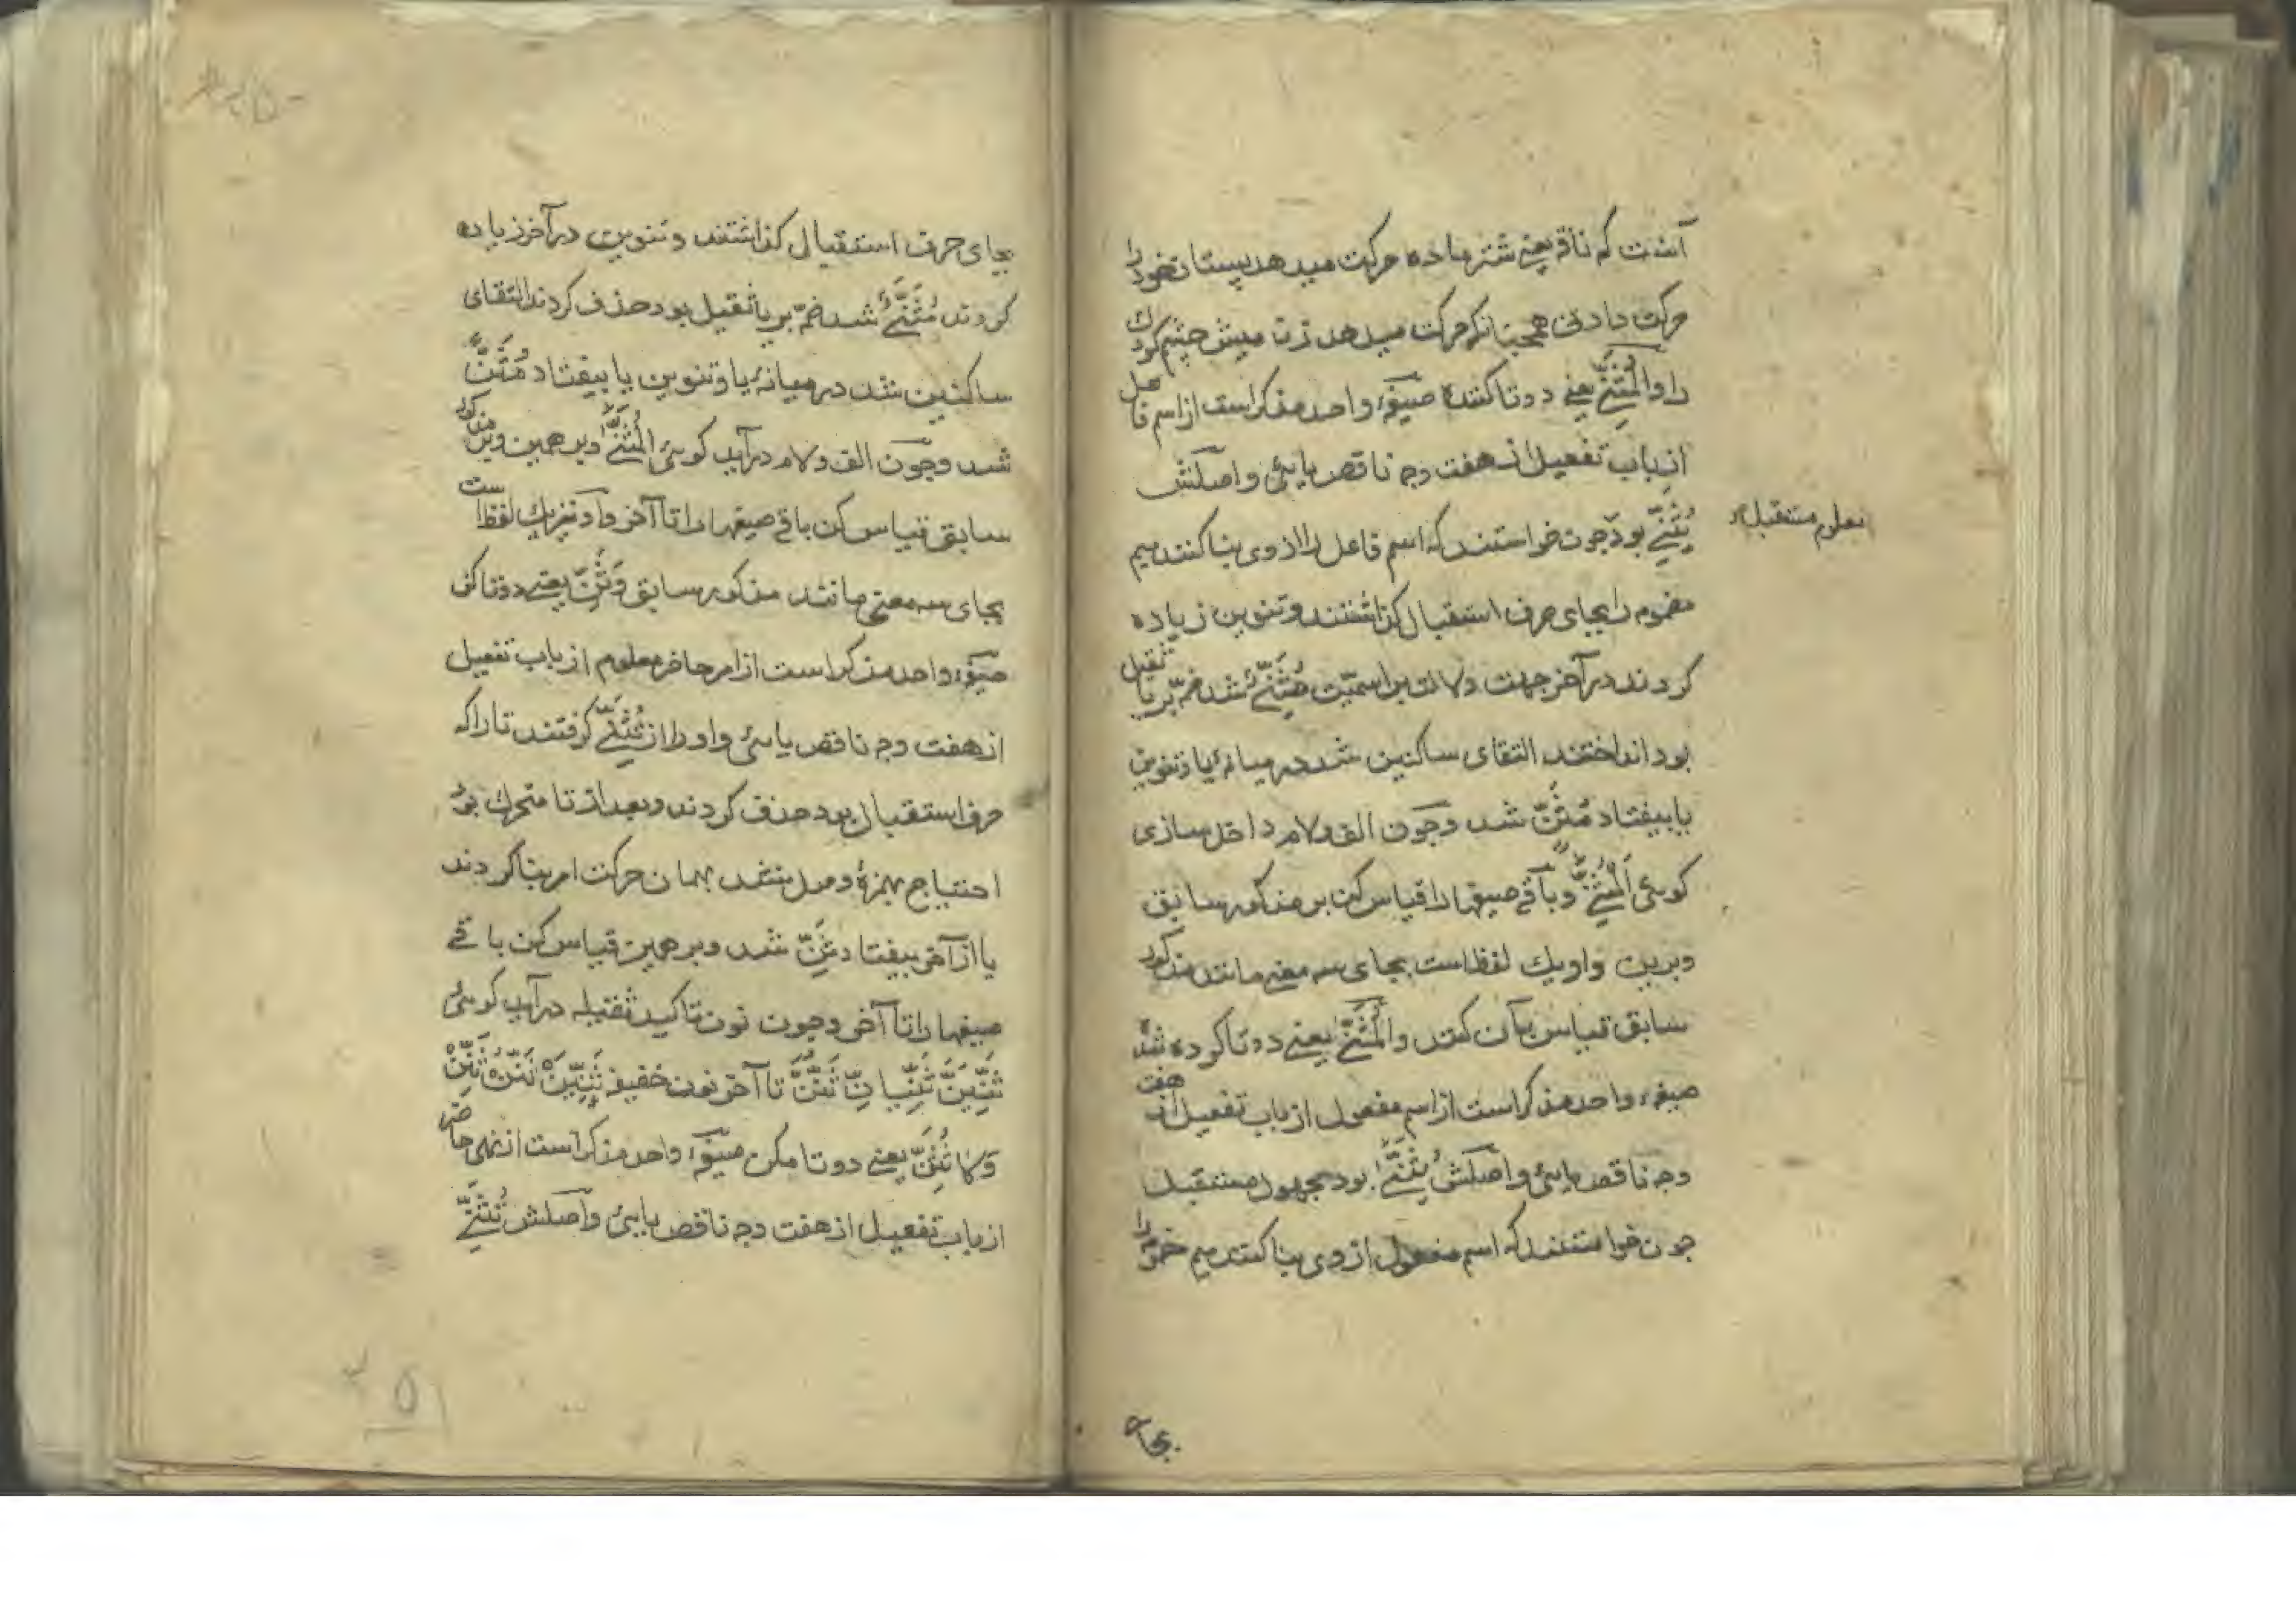 آنست که ناقه یعنے شتر ماده حرکت میدهد پستان خود را
حرکت دادنی همچنانکه حرکت میدهد زن میش چشم کودک
را والْمُثَنِّے یعنے دوتا کننده صیغهٔ واحد مذکر است از اسم فاعل
از باب تفعیل از هفت وجه ناقص یایئ واصلش
يُثَنِّے بود چون خواستند که اسم فاعل را از وی بنا کنند میم
معلوم مستقبل
مضموم را بجای حرف استقبال گذاشتند و تنوین زیاده
کردند در آخر جهت دلالت بر اسمیّت مُثَنِّےٌ شد ضمّه بر یا ثقیل
بود انداختند التقای ساکنین شد در میانهٔ یا و تنوین
یا بیفتاد مُثَنٍّ شد و چون الف و لام داخل سازی
کویئ اَلْمُثَنِّے و باقے صیغها را قیاس کن بر مذکور سابق
وبرین واو یک لفظ است بجای سه معنے مانند مذکور
سابق قیاس بآن کنند والْمُثَنَّے یعنے دوتا کرده شده
صیغهٔ واحد مذکر است از اسم مفعول از باب تفعیل از هفت
وجه ناقص یایئ واصلش يُثَنَّے بود مجهول مستقبل
چون خواستند که اسم مفعول از وی بنا کنند میم مضموم را
بجای
بجای حرف استقبال گذاشتند و تنوین در آخر زیاده
کردند مُثَنَّےٌ شد ضمّه بر یا ثقیل بود حذف کردند التقای
ساکنین شد در میانهٔ یا و تنوین یا بیفتاد مُثَنًّ
شد وچون الف ولام در آید کویئ الْمُثَنَّے وبر همین وبر مذکور
سابق قیاس کن باقے صیغها را تا آخر و آن نیز یک لفظ است
بجای سه معنی مانند مذکور سابق وَثَنِّ یعنے دوتا کن
صیغهٔ واحد مذکر است از امر حاضر معلوم از باب تفعیل
از هفت وجه ناقص یایئ و او را از تُثَنِّے گرفتند تا را که
حرف استقبال بود حذف کردند و بعد از تا متحرک بود
احتیاج بهمزهٔ وصل نشد بهمان حرکت امر بنا کردند
یا از آخر بیفتاد ثَنِّ شد وبر همین قیاس کن باقے
صیغها را تا آخر و چون نون تاکید ثقیله در آید کویئ
ثَنِّيَنَّ ثَنِّيَانِّ ثَنُّنَّ تا آخر نون خفیفه ثَنِّيَنْ ثَنُّنْ ثَنِّنْ
وَلَا تُثَنِّ یعنے دوتا مکن صیغهٔ واحد مذکر است از نهی حاضر
از باب تفعیل از هفت وجه ناقص یایئ واصلش تُثَنِّے